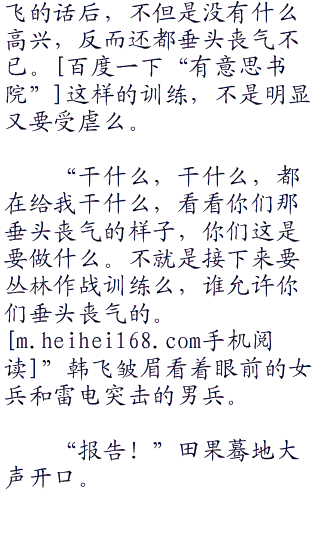 飞的话后，不但是没有什么
高兴，反而还都垂头丧气不
已。[百度一下“有意思书
院”]这样的训练，不是明显
又要受虐么。
“干什么，干什么，都
在给我干什么，看看你们那
垂头丧气的样子，你们这是
要做什么。不就是接下来要
丛林作战训练么，谁允许你
们垂头丧气的。
[m.heihei168.com手机阅
读]”韩飞皱眉看着眼前的女
兵和雷电突击的男兵。
“报告！”田果蓦地大
声开口。